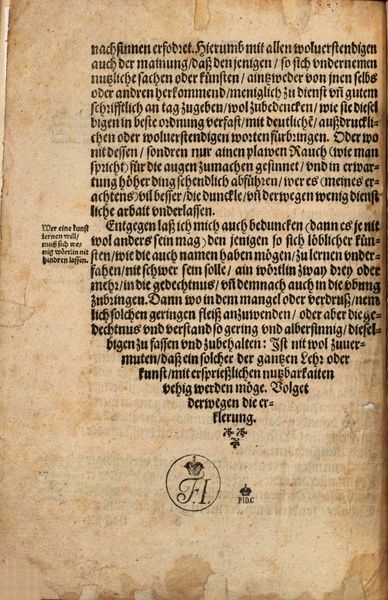 nachsinnen erfodret. Hierumb mit allen wolverstendigen
auch der mainung / daß den jenigen / so sich vndernemen
nutzliche sachen oder künsten / aintzweder von jnen selbs
oder andren herkommend / meniglich zu dienst vñ gutem
schrifftlich an tag zugeben / wol zubedencken / wie sie diesel
bigen in beste ordnung verfast / mit deutlichẽ / außdruckli-
chen oder wolverstendigen worten fürbringen. Oder wo
nit dessen / sondren nur ainen plawen Rauch (wie man
spricht) für die augen zumachen gesinnet / vnd in erwar-
tung höher ding schendlich abführen / wer es (meines er-
achtens) vil besser / die dunckle / vñ derwegen wenig dienst
liche arbait vnderlassen.
Entgegen laß ich mich auch beduncken (dann es je nit
wol anders sein mag) den jenigen so sich löblicher kün-
sten / wie die auch namen haben mögen / zu lernen vnder-
fahen / nit schwer sein solle / ain wörtlin zway drey oder
mehr / in die gedechtnus / vñ demnach auch in die vbung
zubringen. Dann wo in dem mangel oder verdruß / nem
lich solchen geringen fleiß anzuwenden / oder aber die ge-
dechtnus vnd verstand so gering vnd alberstinnig / diesel-
bigen zu fassen vnd zubehalten: Ist nit wol zuuer-
muten / daß ein solcher der gantzen Lehr oder
kunst / mit ersprießlichen nutzbarkaiten
vehig werden möge. Volget
derwegen die er-
klerung.
Wer eine kunst
lernen will /
muß sich we-
nig wörtlin nit
hindren lassen.
F.I.
F.I.D.C